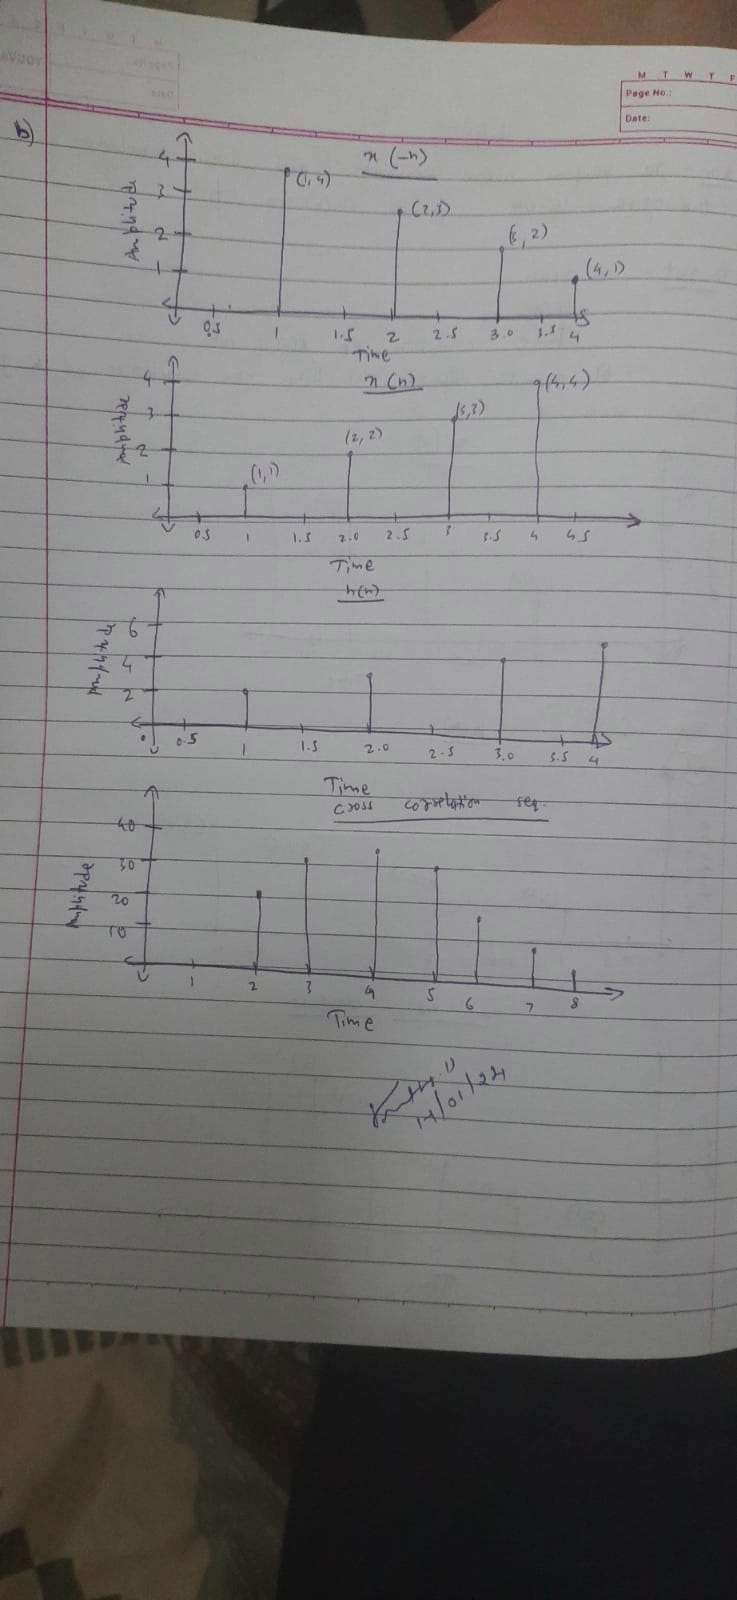 M T W T F
Page No.:
Date:
YOUVA
b)
x(-n)
Amplitude
4
3
2
1
(1,4)
(2,3)
(3,2)
(4,1)
0.5 1 1.5 2 2.5 3.0 3.5 4
Time
x(n)
Amplitude
4
3
2
1
(1,1)
(2,2)
(3,3)
(4,4)
0.5 1 1.5 2.0 2.5 3 3.5 4 4.5
Time
h(n)
Amplitude
6
4
2
0 0.5 1 1.5 2.0 2.5 3.0 3.5 4
Time
cross correlation seq.
Amplitude
40
30
20
10
1 2 3 4 5 6 7 8
Time